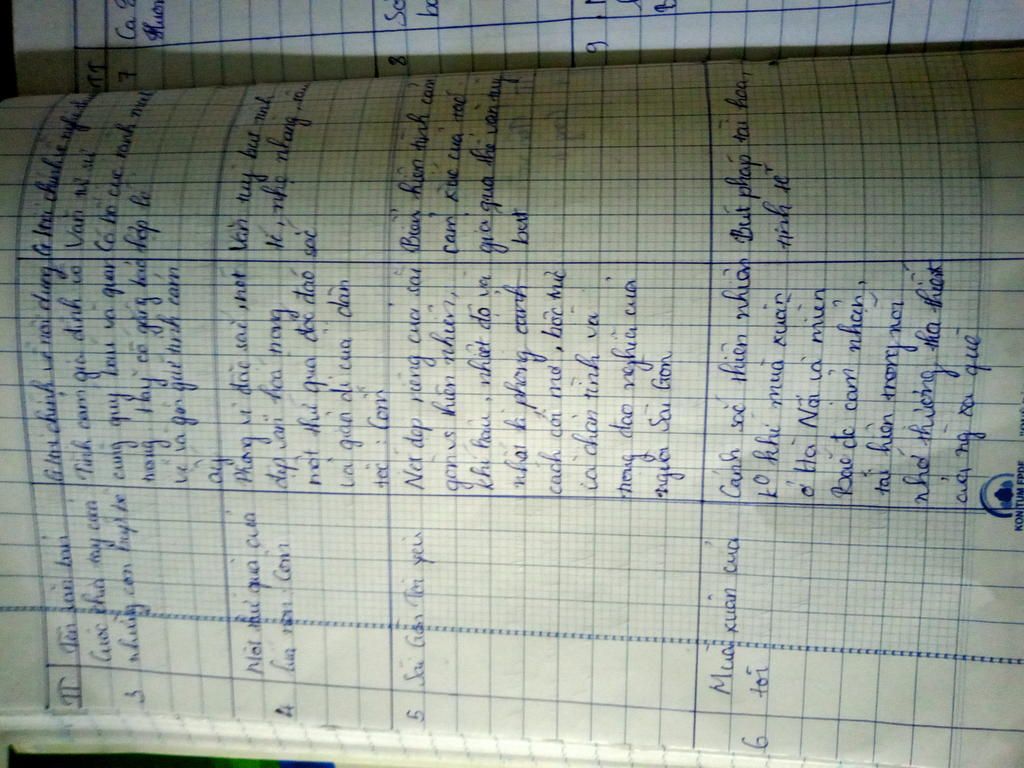 TT
Tên văn bản
Giá trị chính về nội dung
Giá trị chính về nghệ thuật
3
Cuộc chia tay của
những con búp bê
Tình cảm gia đình vô
cùng quý báu và quan
trọng. Hãy cố gắng bảo
vệ và gìn giữ tình cảm
ấy
Văn tự sự
Có bố cục rành mạch
hợp lí
4
Một thứ quà của
lúa non: Cốm
Phong vị đặc sắc, nét
đẹp văn hoá trong
một thứ quà độc đáo
và giản dị của dân
tộc: Cốm
Văn tuỳ bút tinh
tế, nhẹ nhàng, sâu
sắc
5
Sài Gòn Tôi yêu
Nét đẹp riêng của sài
gòn: thiên nhiên,
khí hậu, nhiệt độ và
nhất là phong cách
cách cởi mở, bộc trực
và chân tình và
trọng đạo nghĩa của
người Sài Gòn
Biểu hiện tình cản
cảm xúc của tác
giả qua thể văn tuỳ
bút
6
Mùa xuân của
tôi
Cảnh sắc thiên nhiên
kº khí mùa xuân
ở Hà Nội và miền
Bắc đc cảm nhận,
tái hiện trong nỗi
nhớ thương tha thiết
của ng xa quê
Bút pháp tài hoa,
tinh tế
TT
7
Ca
8
9